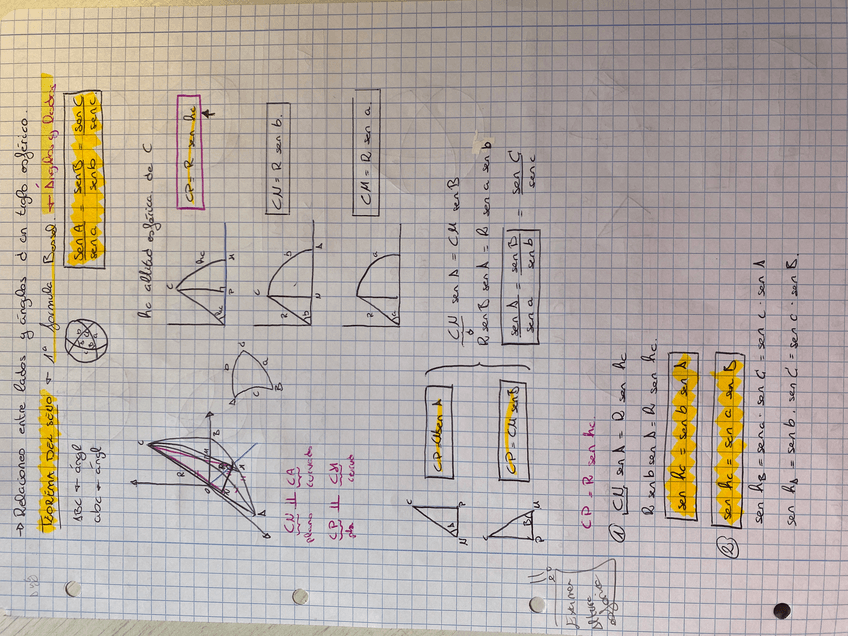 → Relaciones entre lados y ángulos d un triglo esférico.
TEOREMA DEL SENO → 1ª fórmula Bessel. → Ángulos y Lados
ABC → ángl
abc → ángl
sen A / sen a = sen B / sen b = sen C / sen c
hc altitud esférica de C
CP = R sen hc
CN = R sen b.
CM = R sen a
CN ⊥ CA
plano
CP ⊥ CM
CN sen A = CM sen B
R sen B sen A = R sen a sen b
sen A / sen a = sen B / sen b = sen C / sen c
CP = CN sen A
CP = CM sen B
CP = R sen hc
① CN sen A = R sen hc
R sen b sen A = R sen hc.
sen hc = sen b sen A
② sen hc = sen a sen B
sen hB = sen a · sen C = sen c · sen A
sen hA = sen b · sen C = sen c · sen B.
Examen